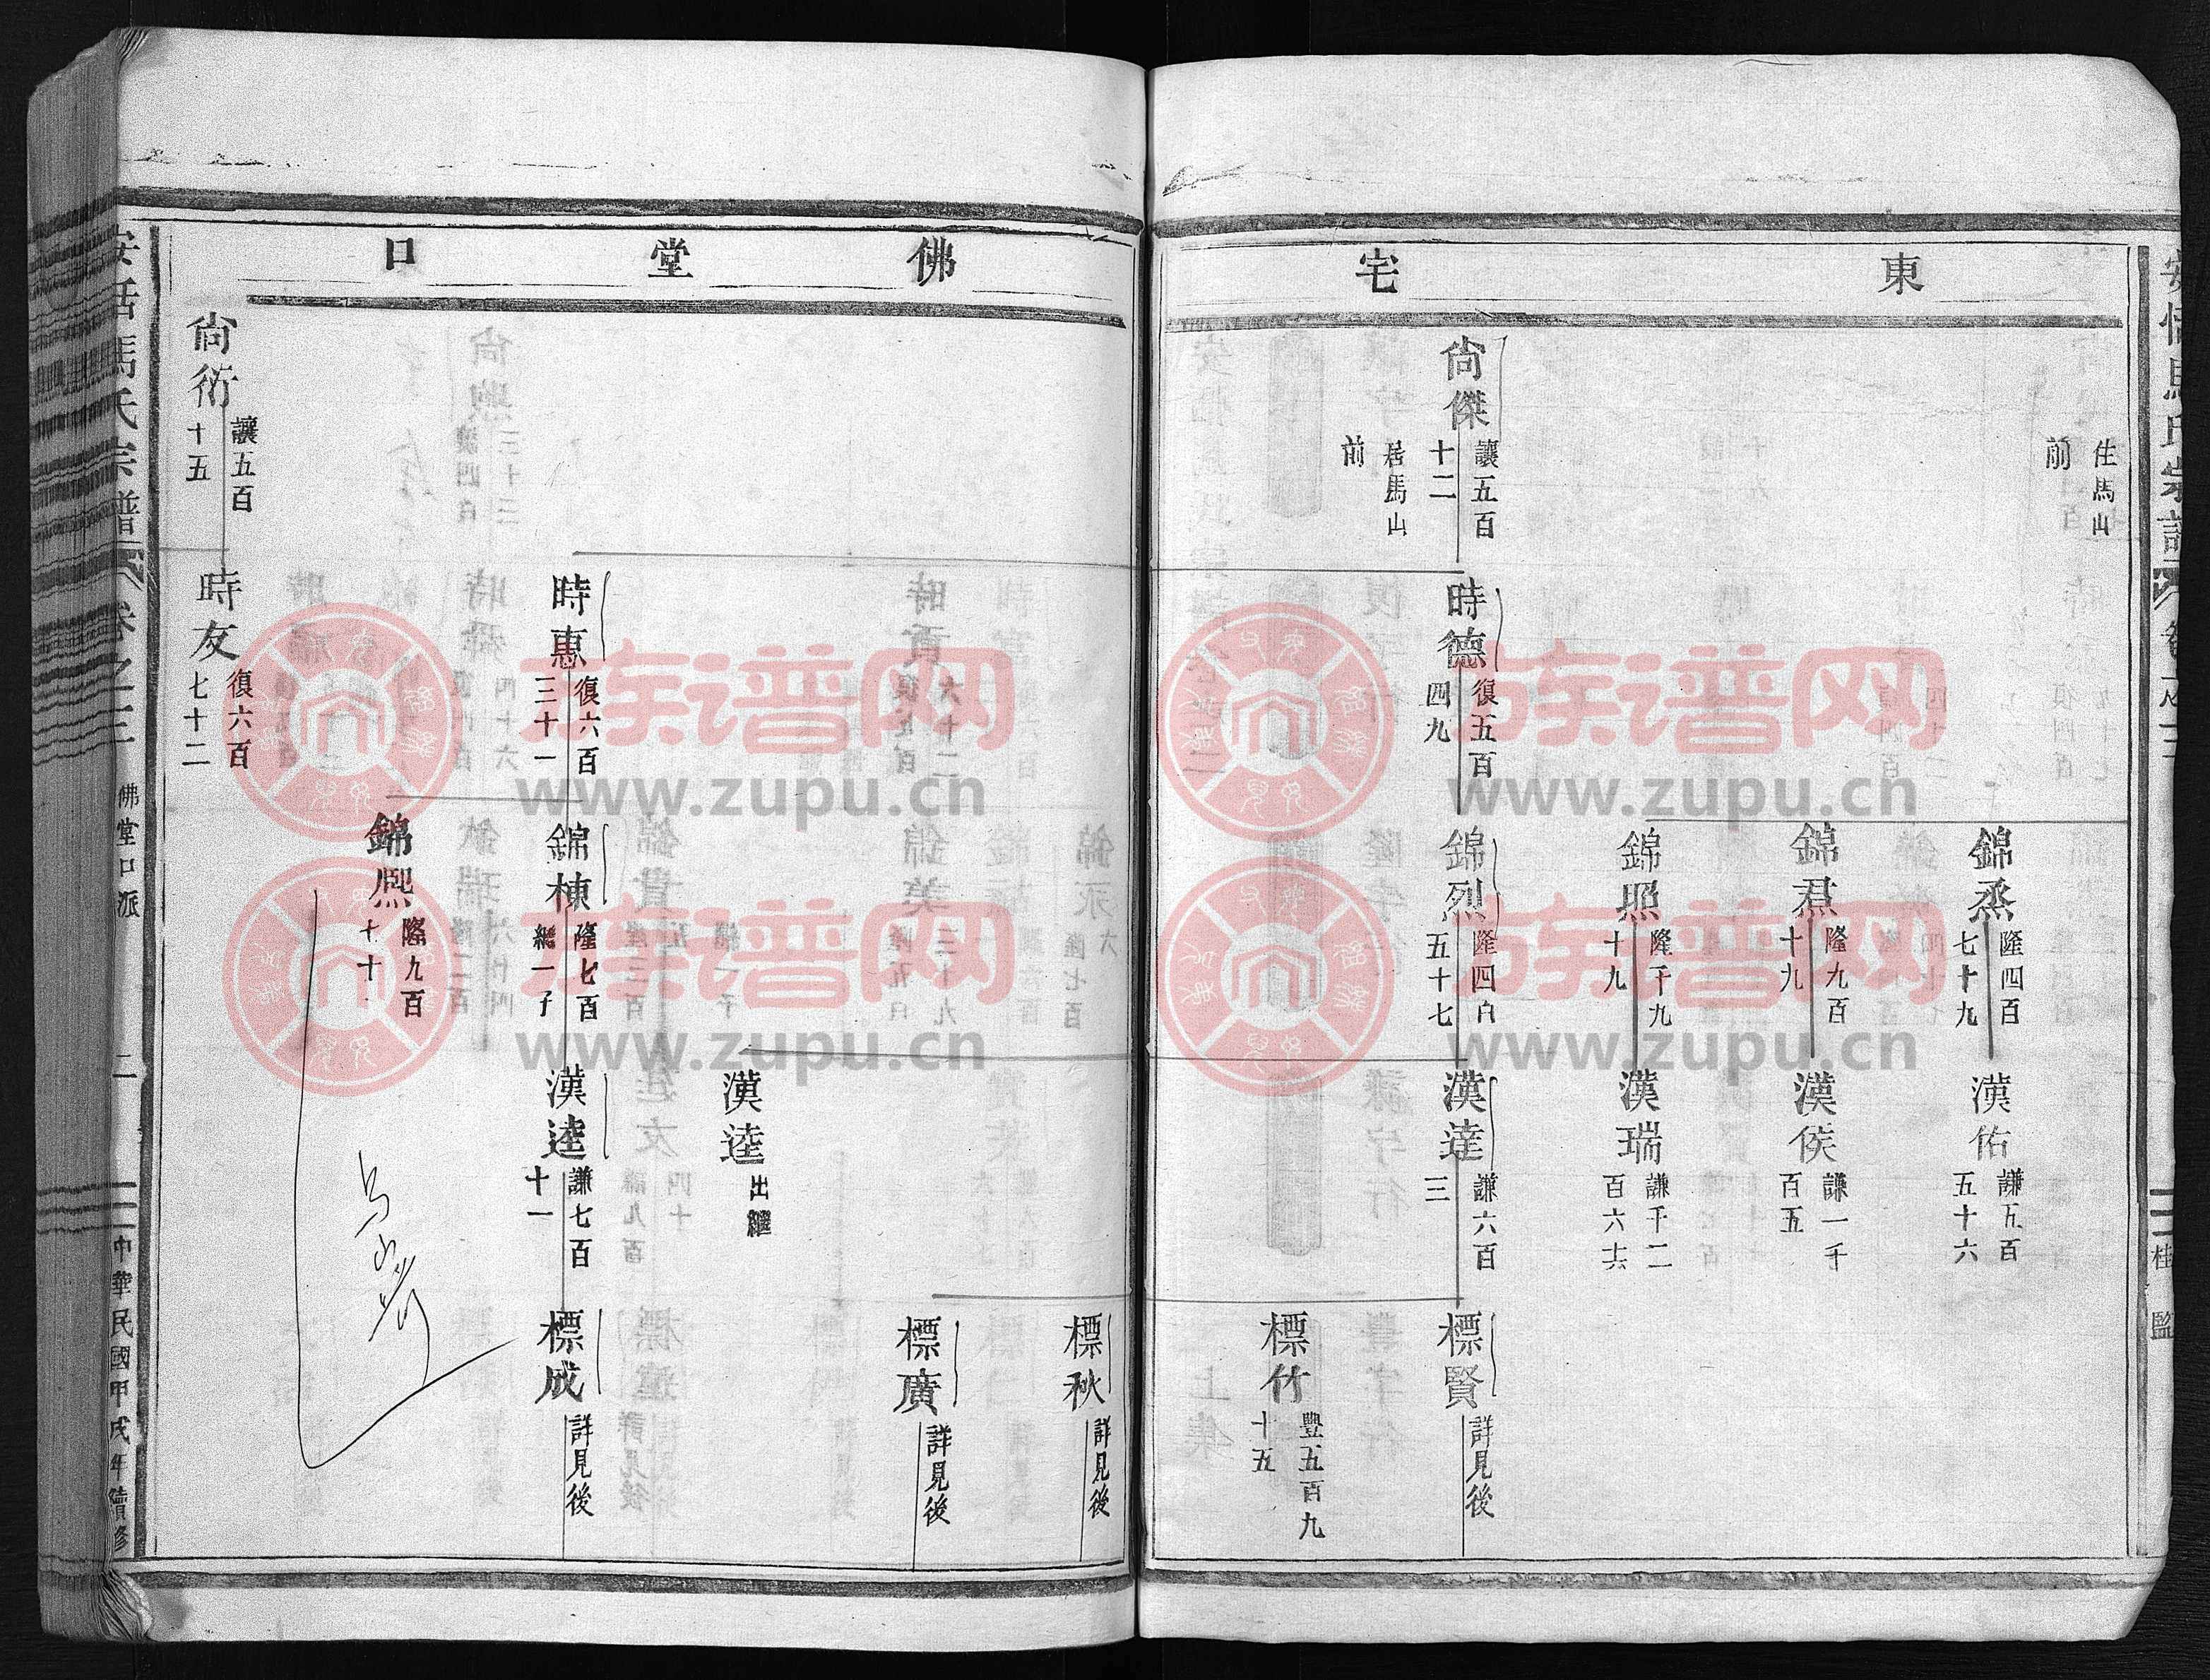 東宅
住馬山
前
錦烝
隆四百
七十九
漢佑
謙五百
五十六
錦焄
隆九百
十九
漢侯
謙一千
百五
錦照
隆千九
十九
漢瑞
謙千二
百六十六
尙傑
讓五百
十二
居馬山
前
時德
復五百
四九
錦烈
隆四百
五十七
漢達
謙六百
三
標賢
詳見後
標竹
豐五百九
十五
佛堂口
標秋
詳見後
標廣
詳見後
漢逵
出繼
時惠
復六百
三十一
錦棟
隆七百
繼一子
漢逵
謙七百
十一
標成
詳見後
錦熙
隆九百
馬氏宗譜
卷之三
佛堂口派
二
中華民國甲戌年續修
尙衍
讓五百
十五
時友
復六百
七十二
族谱网
www.zupu.cn
族谱网
www.zupu.cn
族谱网
www.zupu.cn
族谱网
www.zupu.cn